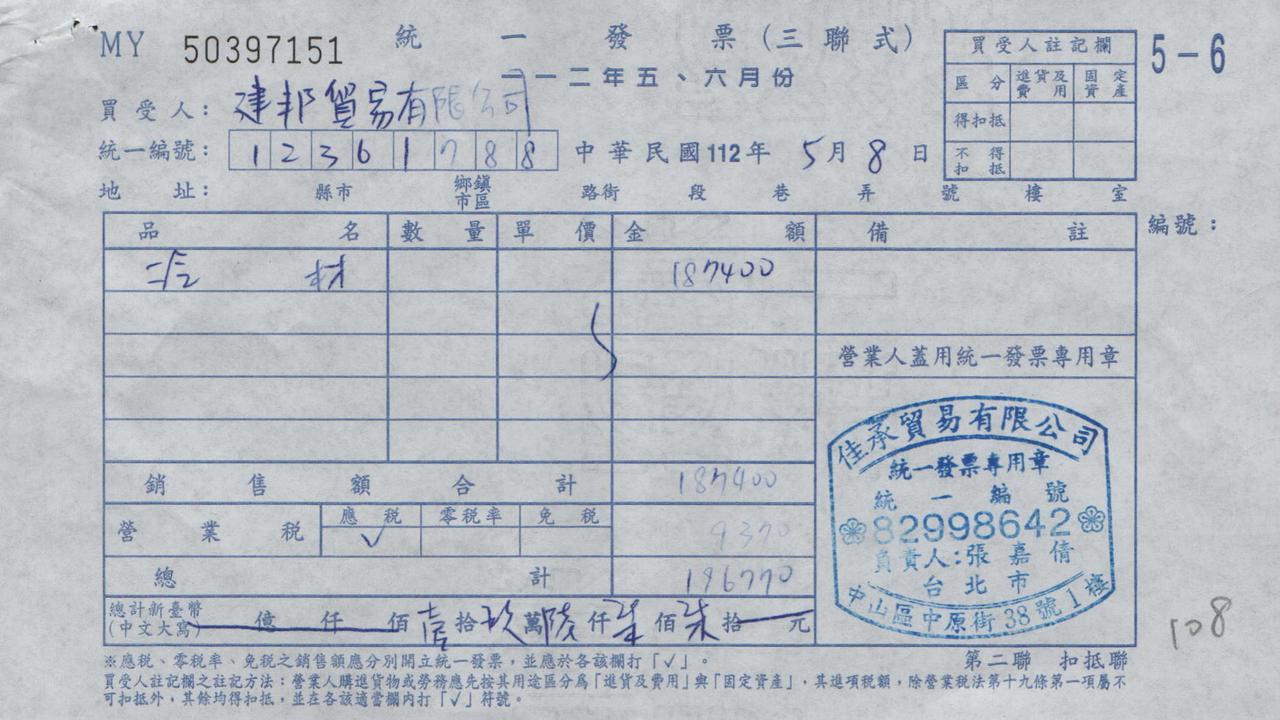 MY 50397151 統一發票(三聯式)
一一二年五、六月份
5-6
買受人註記欄
區分 進貨及費用 固定資產
得扣抵
不得扣抵
買受人: 建邦貿易有限公司
統一編號: 12361788 中華民國112年 5月 8日
地址: 縣市 鄉鎮市區 路街 段 巷 弄 號 樓 室
品名 數量 單價 金額 備註 編號:
材 187400
營業人蓋用統一發票專用章
銷售額合計 187400
營業稅 應稅 零稅率 免稅 9370
✓
總計 196770
總計新臺幣(中文大寫) 億 仟 佰 壹拾 玖萬 陸仟 柒佰 柒拾 元
佳承貿易有限公司
統一發票專用章
統一編號
82998642
負責人:張嘉倩
台北市
中山區中原街38號1樓
108
第二聯 扣抵聯
※應稅、零稅率、免稅之銷售額應分別開立統一發票,並應於各該欄打「✓」。
買受人註記欄之註記方法:營業人購進貨物或勞務應先按其用途區分為「進貨及費用」與「固定資產」,其進項稅額,除營業稅法第十九條第一項屬不
可扣抵外,其餘均得扣抵,並在各該適當欄內打「✓」符號。